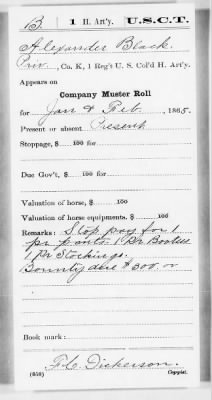 B. | 1 H. Art'y. | U.S.C.T.
Alexander Black
Priv., Co. K, 1 Reg't U. S. Col'd H. Art'y.
Appears on
Company Muster Roll
for Jan & Feb, 1865.
Present or absent Present
Stoppage, $ 100 for
Due Gov't, $ 100 for
Valuation of horse, $ 100
Valuation of horse equipments, $ 100
Remarks: Stop pay for 1
pr pants 1 Pr Bootees
1 Pr Stockings.
Bounty due $300.
Book mark:
F.C. Dickerson.
(858) Copyist.